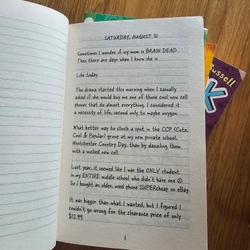 SATURDAY, AUGUST 31
Sometimes I wonder if my mom is BRAIN DEAD.
Then there are days when I know she is.
Like today.
The drama started this morning when I casually
asked if she would buy me one of those cool new cell
phones that do almost everything. I considered it
a necessity of life, second only to maybe oxygen.
What better way to clinch a spot in the CCP (Cute,
Cool & Popular) group at my new private school,
Westchester Country Day, than by dazzling them
with a wicked new cell.
Last year, it seemed like I was the ONLY student
in my ENTIRE middle school who didn't have one
So I bought an older, used phone SUPERcheap on eBay.
It was bigger than what I wanted, but I figured I
couldn't go wrong for the clearance price of only
$12.99.
1
Russell
K